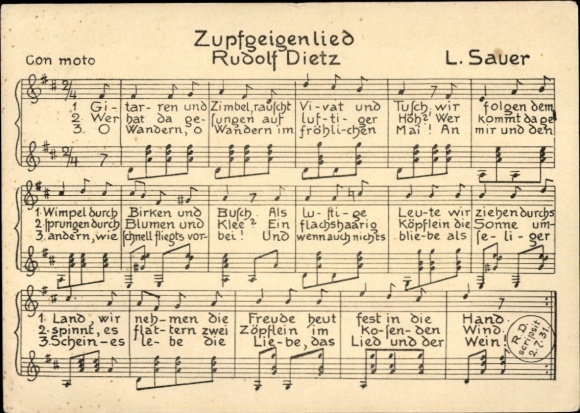 Zupfgeigenlied
Con moto Rudolf Dietz L. Sauer
1 Gi- tar- ren und Zimbel, rauscht Vi- vat und Tusch, wir folgen dem
2. Wer hat da ge- sungen auf luf- ti- ger Höh? Wer kommt da ge
3. O Wandern, o Wandern im fröhli- chen Mai! An mir und den
1. Wimpel durch Birken und Busch. Als lu- sti- ge Leu- te wir ziehen durchs
2. sprungen durch Blumen und Klee? Ein flachshaarig Köpflein die Sonne um-
3. andern, wie schnell fliegts vor- bei! Und wenn auch nichts blie- be als se- li- ger
1. Land, wir neh- men die Freude heut fest in die Hand
2. spinnt, es flat- tern zwei Zöpflein im Ko- sen- den Wind.
3. Schein- es le- be die Lie- be, das Lied und der Wein!
R.D.
scripsit
2.7.31.